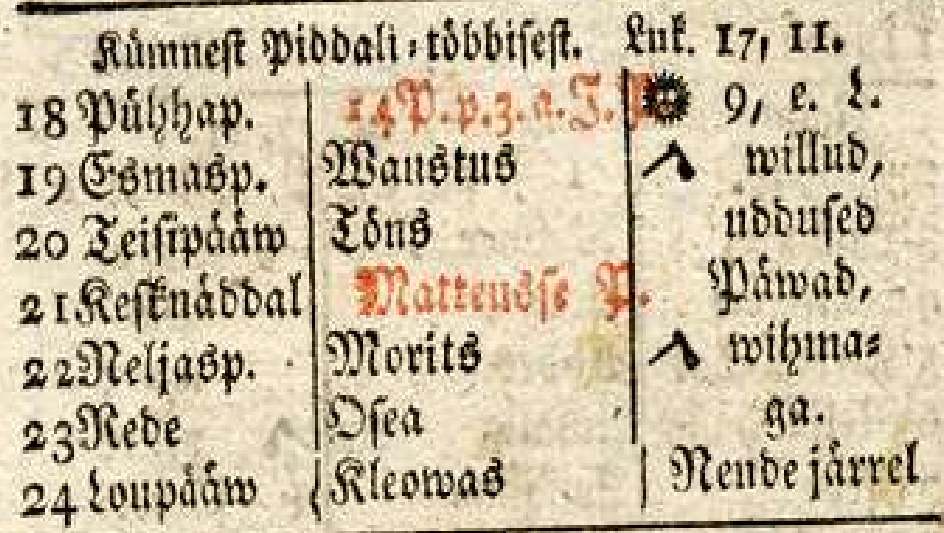 Kümnest Piddali-többisest. Luk. 17, 11.
18 Pühhap. 14 P. p. z. a. J. P. 9, e. L.
19 Esmasp. Wanstus willud,
20 Teisipääw Töns uddused
21 Kesknäddal Matteusse P. Päwad,
22 Neljasp. Morits wihma-
23 Rede Osea ga.
24 Loupääw Kleowas Nende järrel